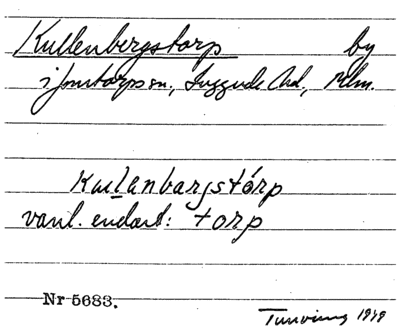 Kullenbergstorp by
i Jonstorps sn, Luggude hd, Mlm.
Kullanbargstórp
vanl. endast: torp
Nr 5683.
Tunving 1949